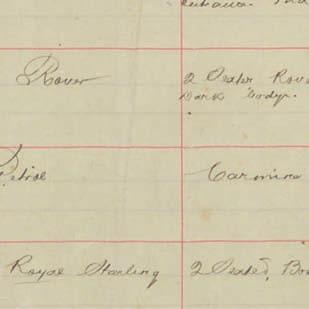 Rover
2 Seater Rove
Dark Body.
Petrol
Carmine
Royal Starling
2 Seated, Bro